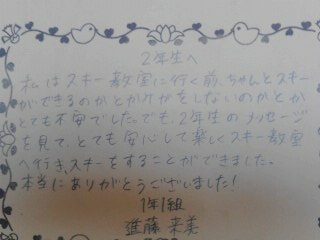 2年生へ
私はスキー教室に行く前、ちゃんとスキー
ができるのかとかケガをしないのかとか
とても不安でした。でも、2年生のメッセージ
を見て、とても安心して楽しくスキー教室
へ行き、スキーをすることができました。
本当にありがとうございました！
1年1組
進藤 来美